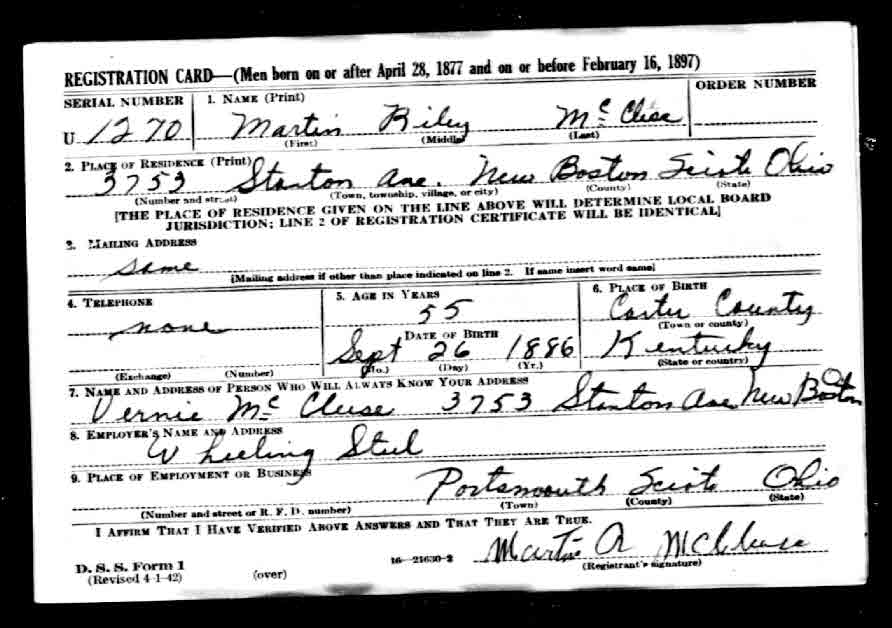 REGISTRATION CARD—(Men born on or after April 28, 1877 and on or before February 16, 1897)
SERIAL NUMBER 1. NAME (Print) ORDER NUMBER
U 1270 Martin Riley
(First) (Middle) (Last)
2. PLACE OF RESIDENCE (Print)
3753 Stanton Ave. New Boston Scioto Ohio
(Number and street) (Town, township, village, or city) (County) (State)
[THE PLACE OF RESIDENCE GIVEN ON THE LINE ABOVE WILL DETERMINE LOCAL BOARD
JURISDICTION; LINE 2 OF REGISTRATION CERTIFICATE WILL BE IDENTICAL]
3. MAILING ADDRESS
same
[Mailing address if other than place indicated on line 2. If same insert word same]
4. TELEPHONE 5. AGE IN YEARS 6. PLACE OF BIRTH
none 55 Carter County
(Town or county)
DATE OF BIRTH
Sept 26 1886 Kentucky
(Exchange) (Number) (Mo.) (Day) (Yr.) (State or country)
7. NAME AND ADDRESS OF PERSON WHO WILL ALWAYS KNOW YOUR ADDRESS
Vernie 3753 Stanton Ave New Boston
8. EMPLOYER'S NAME AND ADDRESS
Wheeling Steel
9. PLACE OF EMPLOYMENT OR BUSINESS
Portsmouth Scioto Ohio
(Number and street or R. F. D. number) (Town) (County) (State)
I AFFIRM THAT I HAVE VERIFIED ABOVE ANSWERS AND THAT THEY ARE TRUE.
Martin R
D. S. S. Form 1 16—21630-2 (Registrant's signature)
(Revised 4-1-42) (over)